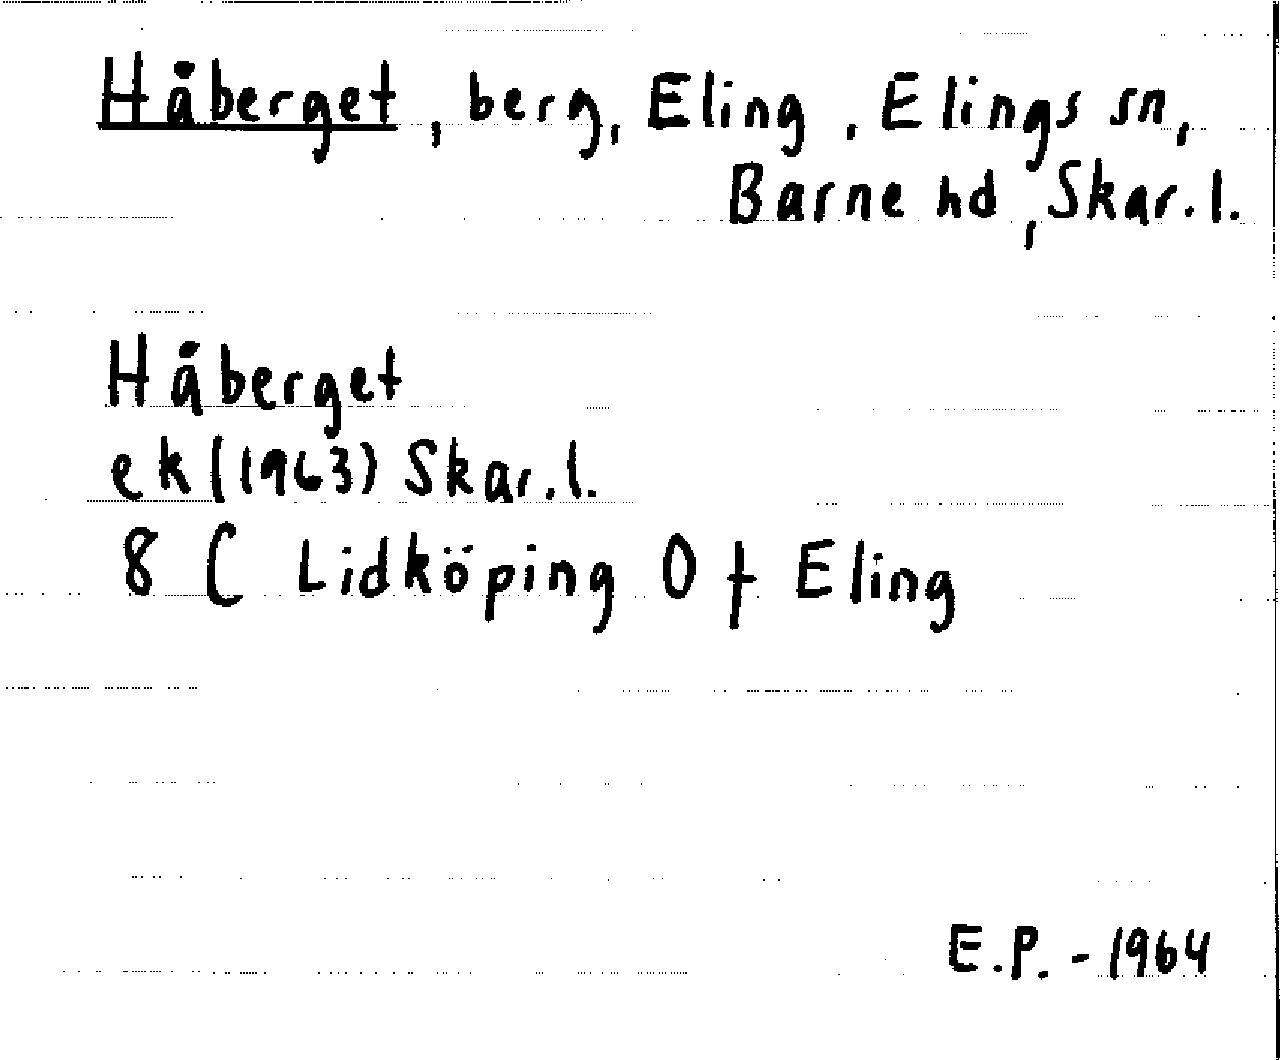 Håberget, berg, Eling, Elings sn,
Barne hd, Skar. l.
Håberget
ek (1963) Skar. l.
8 C Lidköping O f Eling
E.P. - 1964